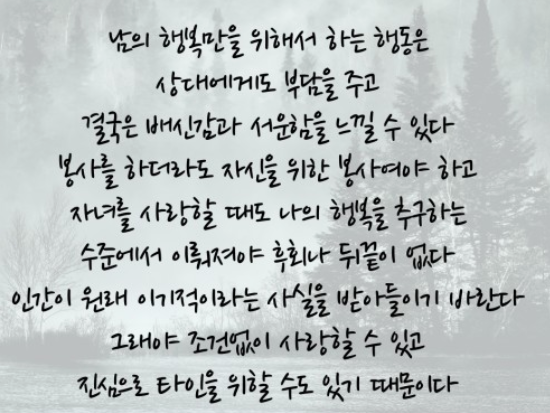 남의 행복만을 위해서 하는 행동은
상대에게도 부담을 주고
결국은 배신감과 서운함을 느낄 수 있다
봉사를 하더라도 자신을 위한 봉사여야 하고
자녀를 사랑할 때도 나의 행복을 추구하는
수준에서 이뤄져야 후회나 뒤끝이 없다
인간이 원래 이기적이라는 사실을 받아들이기 바란다
그래야 조건없이 사랑할 수 있고
진심으로 타인을 위할 수도 있기 때문이다